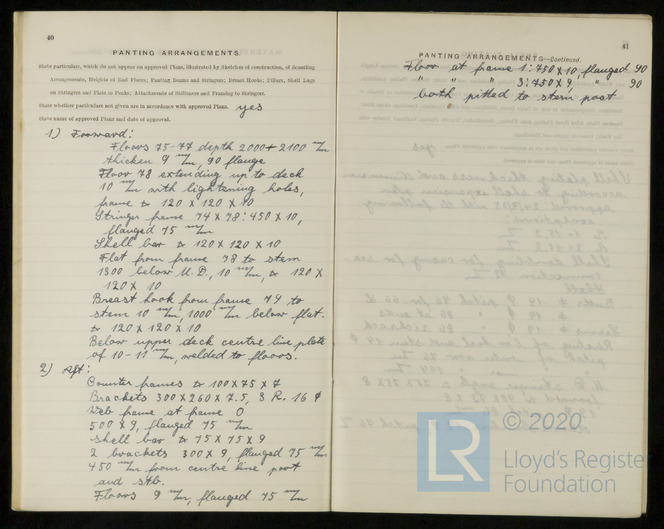 40
PANTING ARRANGEMENTS.
State particulars, which do not appear on approved Plans, illustrated by Sketches of construction, of Scantling
Arrangements, Heights of End Floors; Panting Beams and Stringers; Breast Hooks; Pillars, Shell Lugs
on Stringers and Flats in Peaks; Attachments of Stiffeners and Framing to Stringers.
State whether particulars not given are in accordance with approved Plans. yes
State name of approved Plan and date of approval.
1) Forward:
Floors 75-77 depth 2000 + 2100 m/m
thicken 9 m/m, 90 flange
Floor 78 extending up to deck
10 m/m with lightening holes,
frame 120 x 120 x 10
Stringer frame 74 x 78: 450 x 10,
flanged 75 m/m
Shell bar 120 x 120 x 10
Flat from frame 78 to stem
1800 below U.D., 10 m/m, 120 x
120 x 10
Breast hook from frame 79 to
stem 10 m/m, 1000 m/m below flat.
120 x 120 x 10
Below upper deck centre line plate
of 10-11 m/m, welded to floors.
2) Aft:
Counter frames 100 x 75 x 7
Brackets 300 x 260 x 7.5, 3 R. 16
Web frame at frame 0
500 x 9, flanged 75 m/m
shell bar 75 x 75 x 9
2 brackets 300 x 9, flanged 75 m/m
450 m/m from centre line port
and stb.
Floors 9 m/m, flanged 75 m/m
41
PANTING ARRANGEMENTS—Continued.
Floor at frame 1: 750 x 10, flanged 90
" " " 3: 750 x 9, " 90
both fitted to stern post
© 2020
LR
Lloyd's Register
Foundation